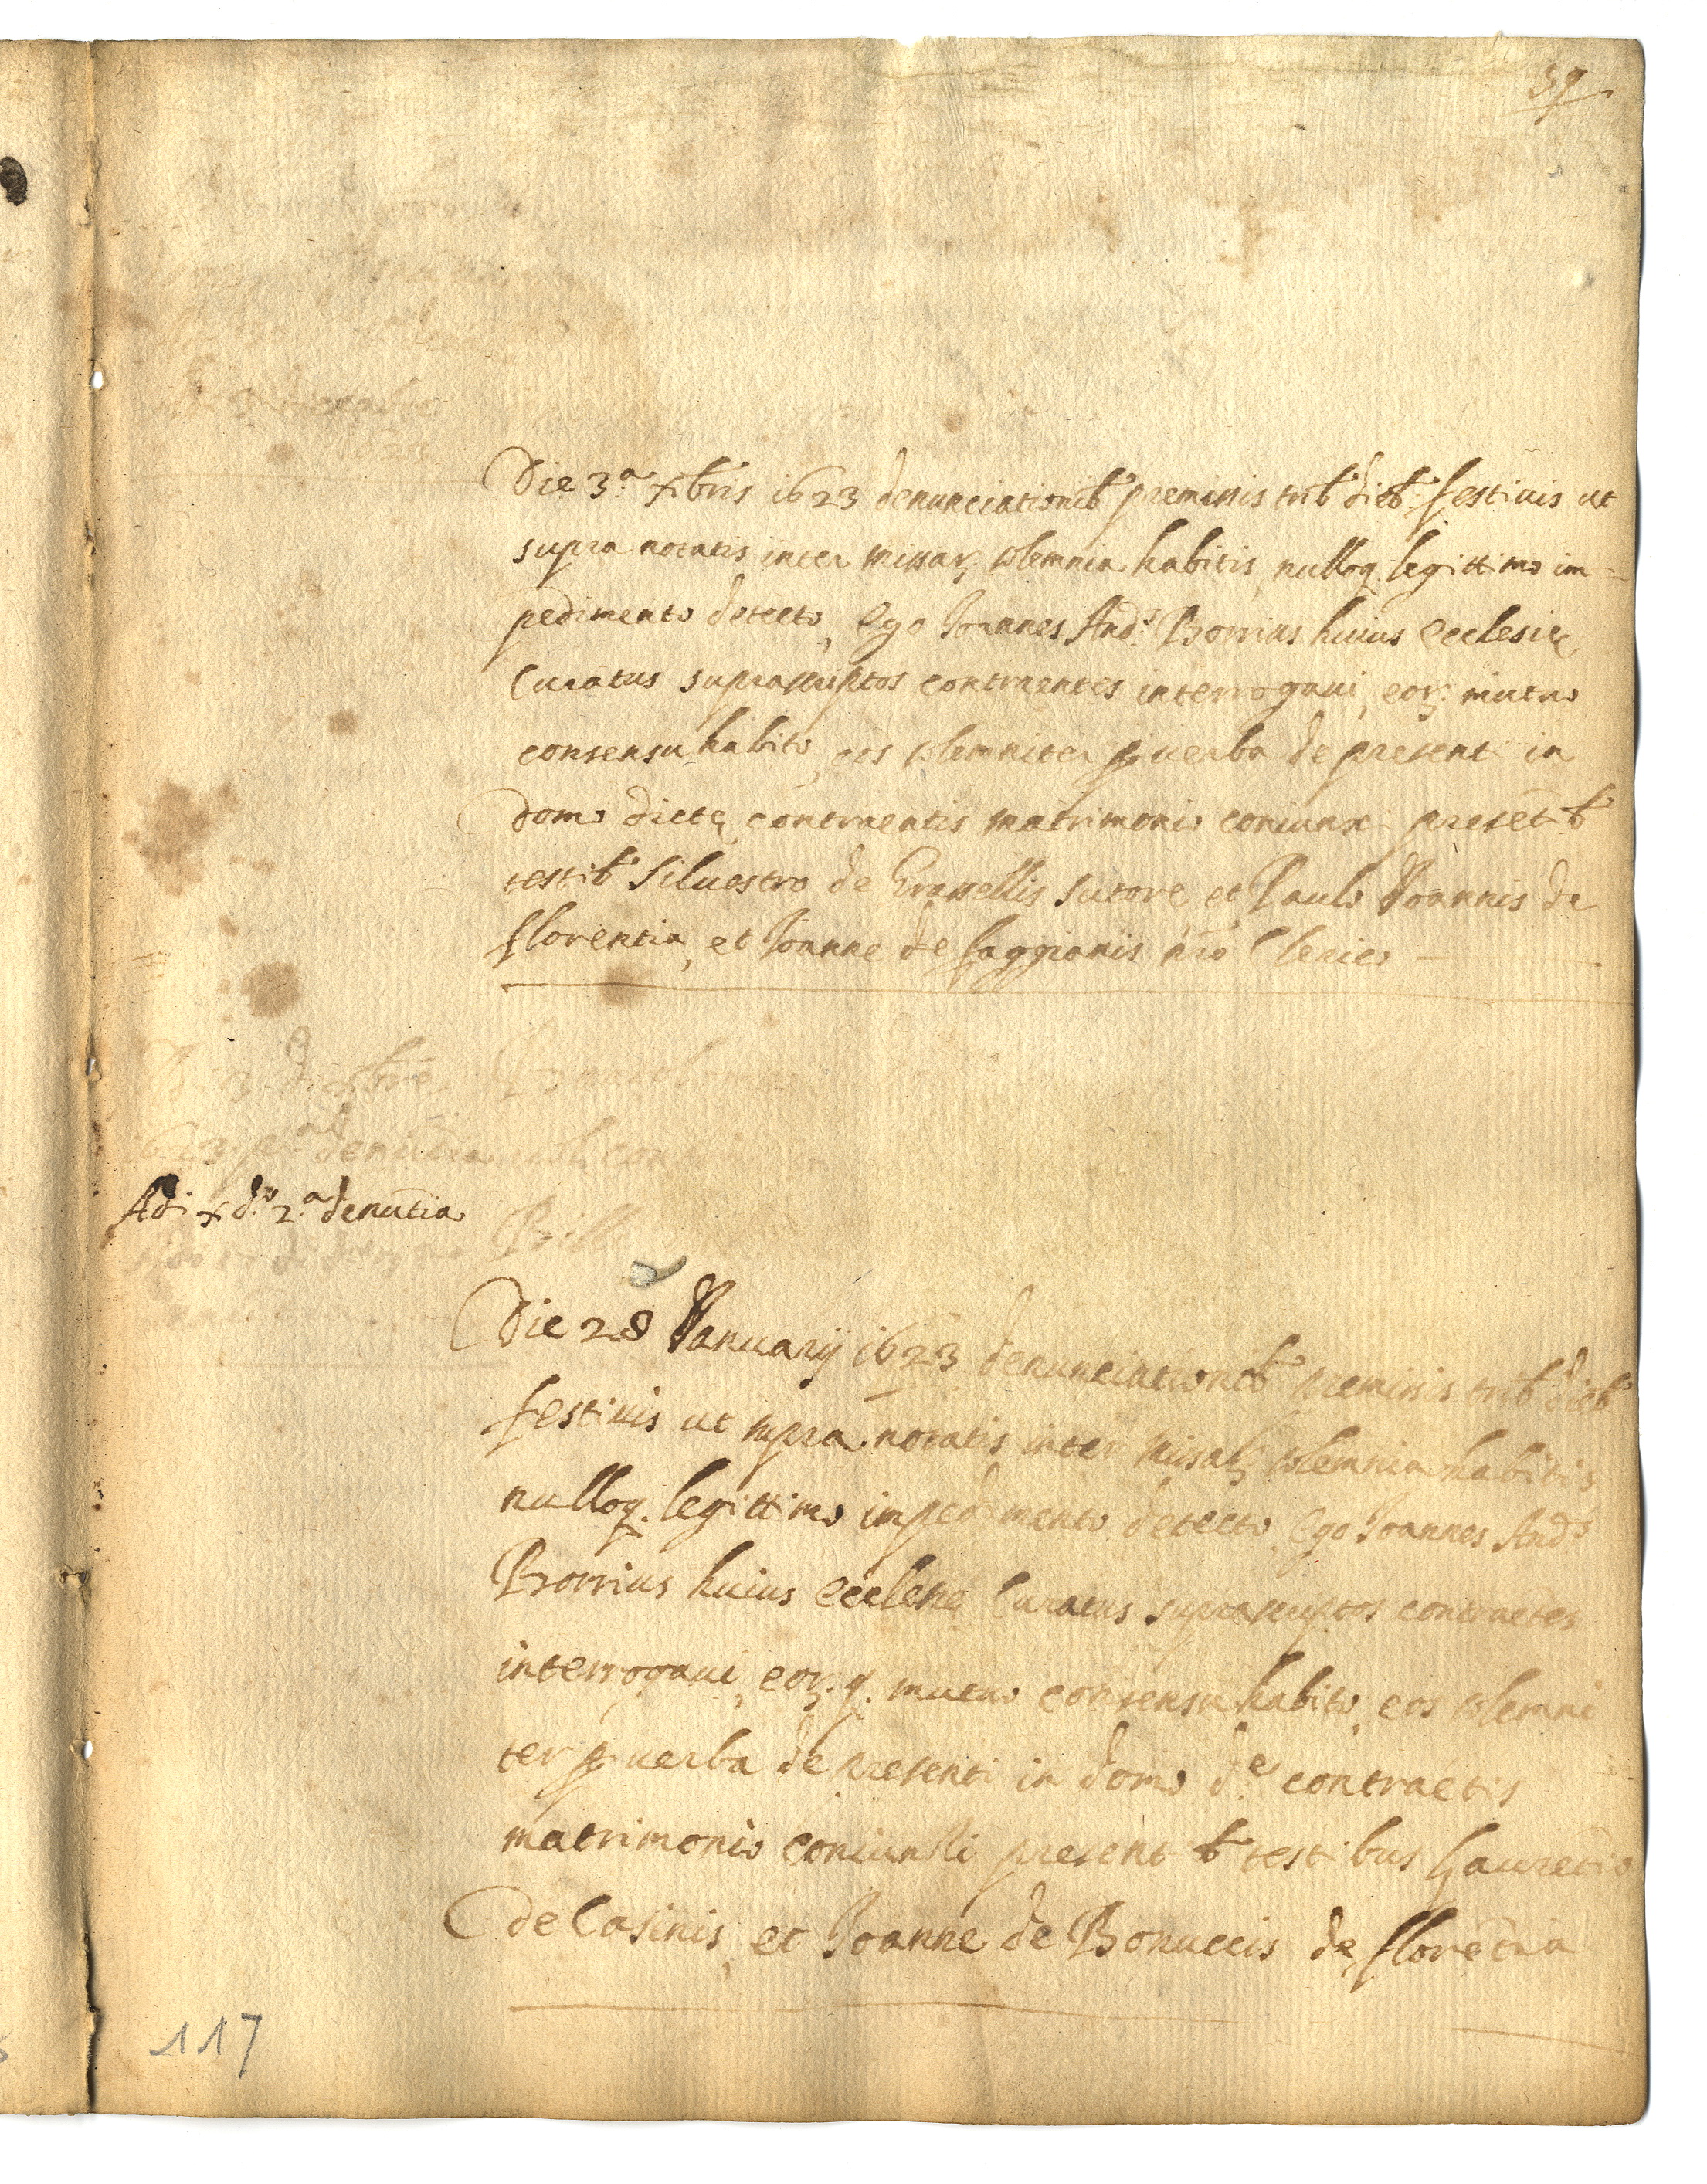 59
Die 3.ª Xbris 1623 denunciationib' premissis trib' dieb' festiuis ut
supra notatis inter missaꝝ solemnia habitis, nulloq. legittimo im-
pedimento detecto, Ego Joannes And.s Borrius huius Ecclesię
Curatus suprascriptos contraentes interrogaui, eoꝝ: mutuo
consensu habito, eos solemniter ꝑ uerba de present in
domo dictę contraentis matrimonio coniunxi presēt.b'
testib' Siluestro de Grassellis sutore et Paulo Joannis de
florentia, et Joanne de faggianis nr̄o Clerico
3 di Xbre
1623 p.ª denūtia
Adi X d.º 2.ª denūtia
Die 28 Januarij 1623 denunciationib' premissis trib' dieb'
festiuis ut supra notatis inter missaꝝ solemnia habitis
nulloq. legittimo impedimento detecto Ego Joannes And.s
Borrius huius Ecclesię Curatus suprascriptos contraetes
interrogaui, eoꝝ.q. mutuo consensu habito, eos solemni
ter ꝑ uerba de presenti in domo d.e contraetis
matrimonio coniunsti present.b' testibus Laurētio
de Casinis, et Joanne de Bonuccis de florētia
117